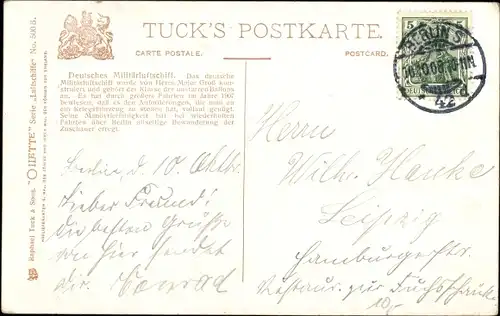 TUCK'S POSTKARTE.
CARTE POSTALE.
POSTCARD.
Deutsches Militärluftschiff. Das deutsche
Militärluftschiff wurde von Herrn Major Groß kon-
struiert und gehört der Klasse der unstarren Ballons
an. Es hat durch größere Fahrten im Jahre 1907
bewiesen, daß es den Anforderungen, die man an
ein Kriegsfahrzeug zu stellen hat, vollauf genügt.
Seine Manövrierfähigkeit hat bei wiederholten
Fahrten über Berlin allseitige Bewunderung der
Zuschauer erregt.
Raphael Tuck & Sons. "OILETTE" Serie „Luftschiffe" No. 600 B.
5
BERLIN S
42
Berlin, d. 10. Oktbr.
Lieber Freund!
Die besten Grüße
von hier sendet
dir Konrad
Herrn
Wilh. Hanke
Leipzig
Hamburgerstr.
Restaur. zur Fuchsschänke